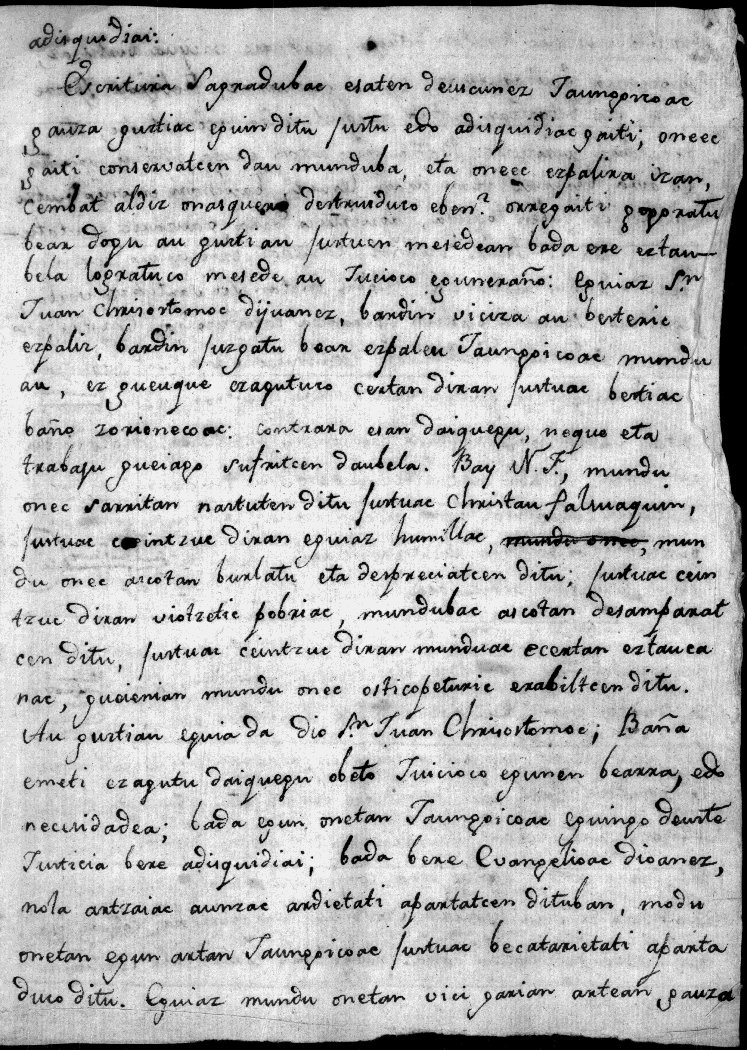 adisquidiai:
Escritura Sagradubac esaten deuscunez Jaungoicoac
gauza gustiac eguin ditu justu edo adisquidiac gaiti; oneec
gaiti conservatcen dau munduba, eta oneec ezpalira izan,
cembat aldiz onasquero destruiduco eben? orregaiti gogoratu
bear dogu au gustiau justuen mesedean bada ere eztau-
bela logratuco mesede au Juicioco eguneraño: Eguiaz Sn
Juan Chrisostomoc dijuanez, bardin viciza au besteric
ezpaliz, bardin juzgatu bear ezpaleu Jaungoicoac mundu
au, ez gueuque ezagutuco certan diran justuac bestiac
baño zorionecoac: contrara esan daiquegu, neque eta
trabaju gueiago sufritcen daubela. Bay N. F., mundu
onec sarritan nastuten ditu justuac Christau falsuaquin,
justuac ceintzuc diran eguiaz humillac, mundu onec, mun
du onec ascotan burlatu eta despreciatcen ditu; justuac cein
tzuc diran viotzetic pobriac, mundubac ascotan desamparat
cen ditu, justuac ceintzuc diran munduac ecertan eztauca
nac, gucienian mundu onec osticopeturic erabiltcen ditu.
Au gustiau eguia da dio Sn Juan Chrisostomoc; Baña
emeti ezagutu daiquegu obeto Juicioco egunen bearra, edo
necesidadea; bada egun onetan Jaungoicoac eguingo deuste
Justicia bere adisquidiai; bada bere Evangelioac dioanez,
nola artzaiac aunzac ardietati apartatcen dituban, modu
onetan egun artan Jaungoicoac justuac becatarietati aparta
duco ditu. Eguiaz mundu onetan vici garian artean gauza